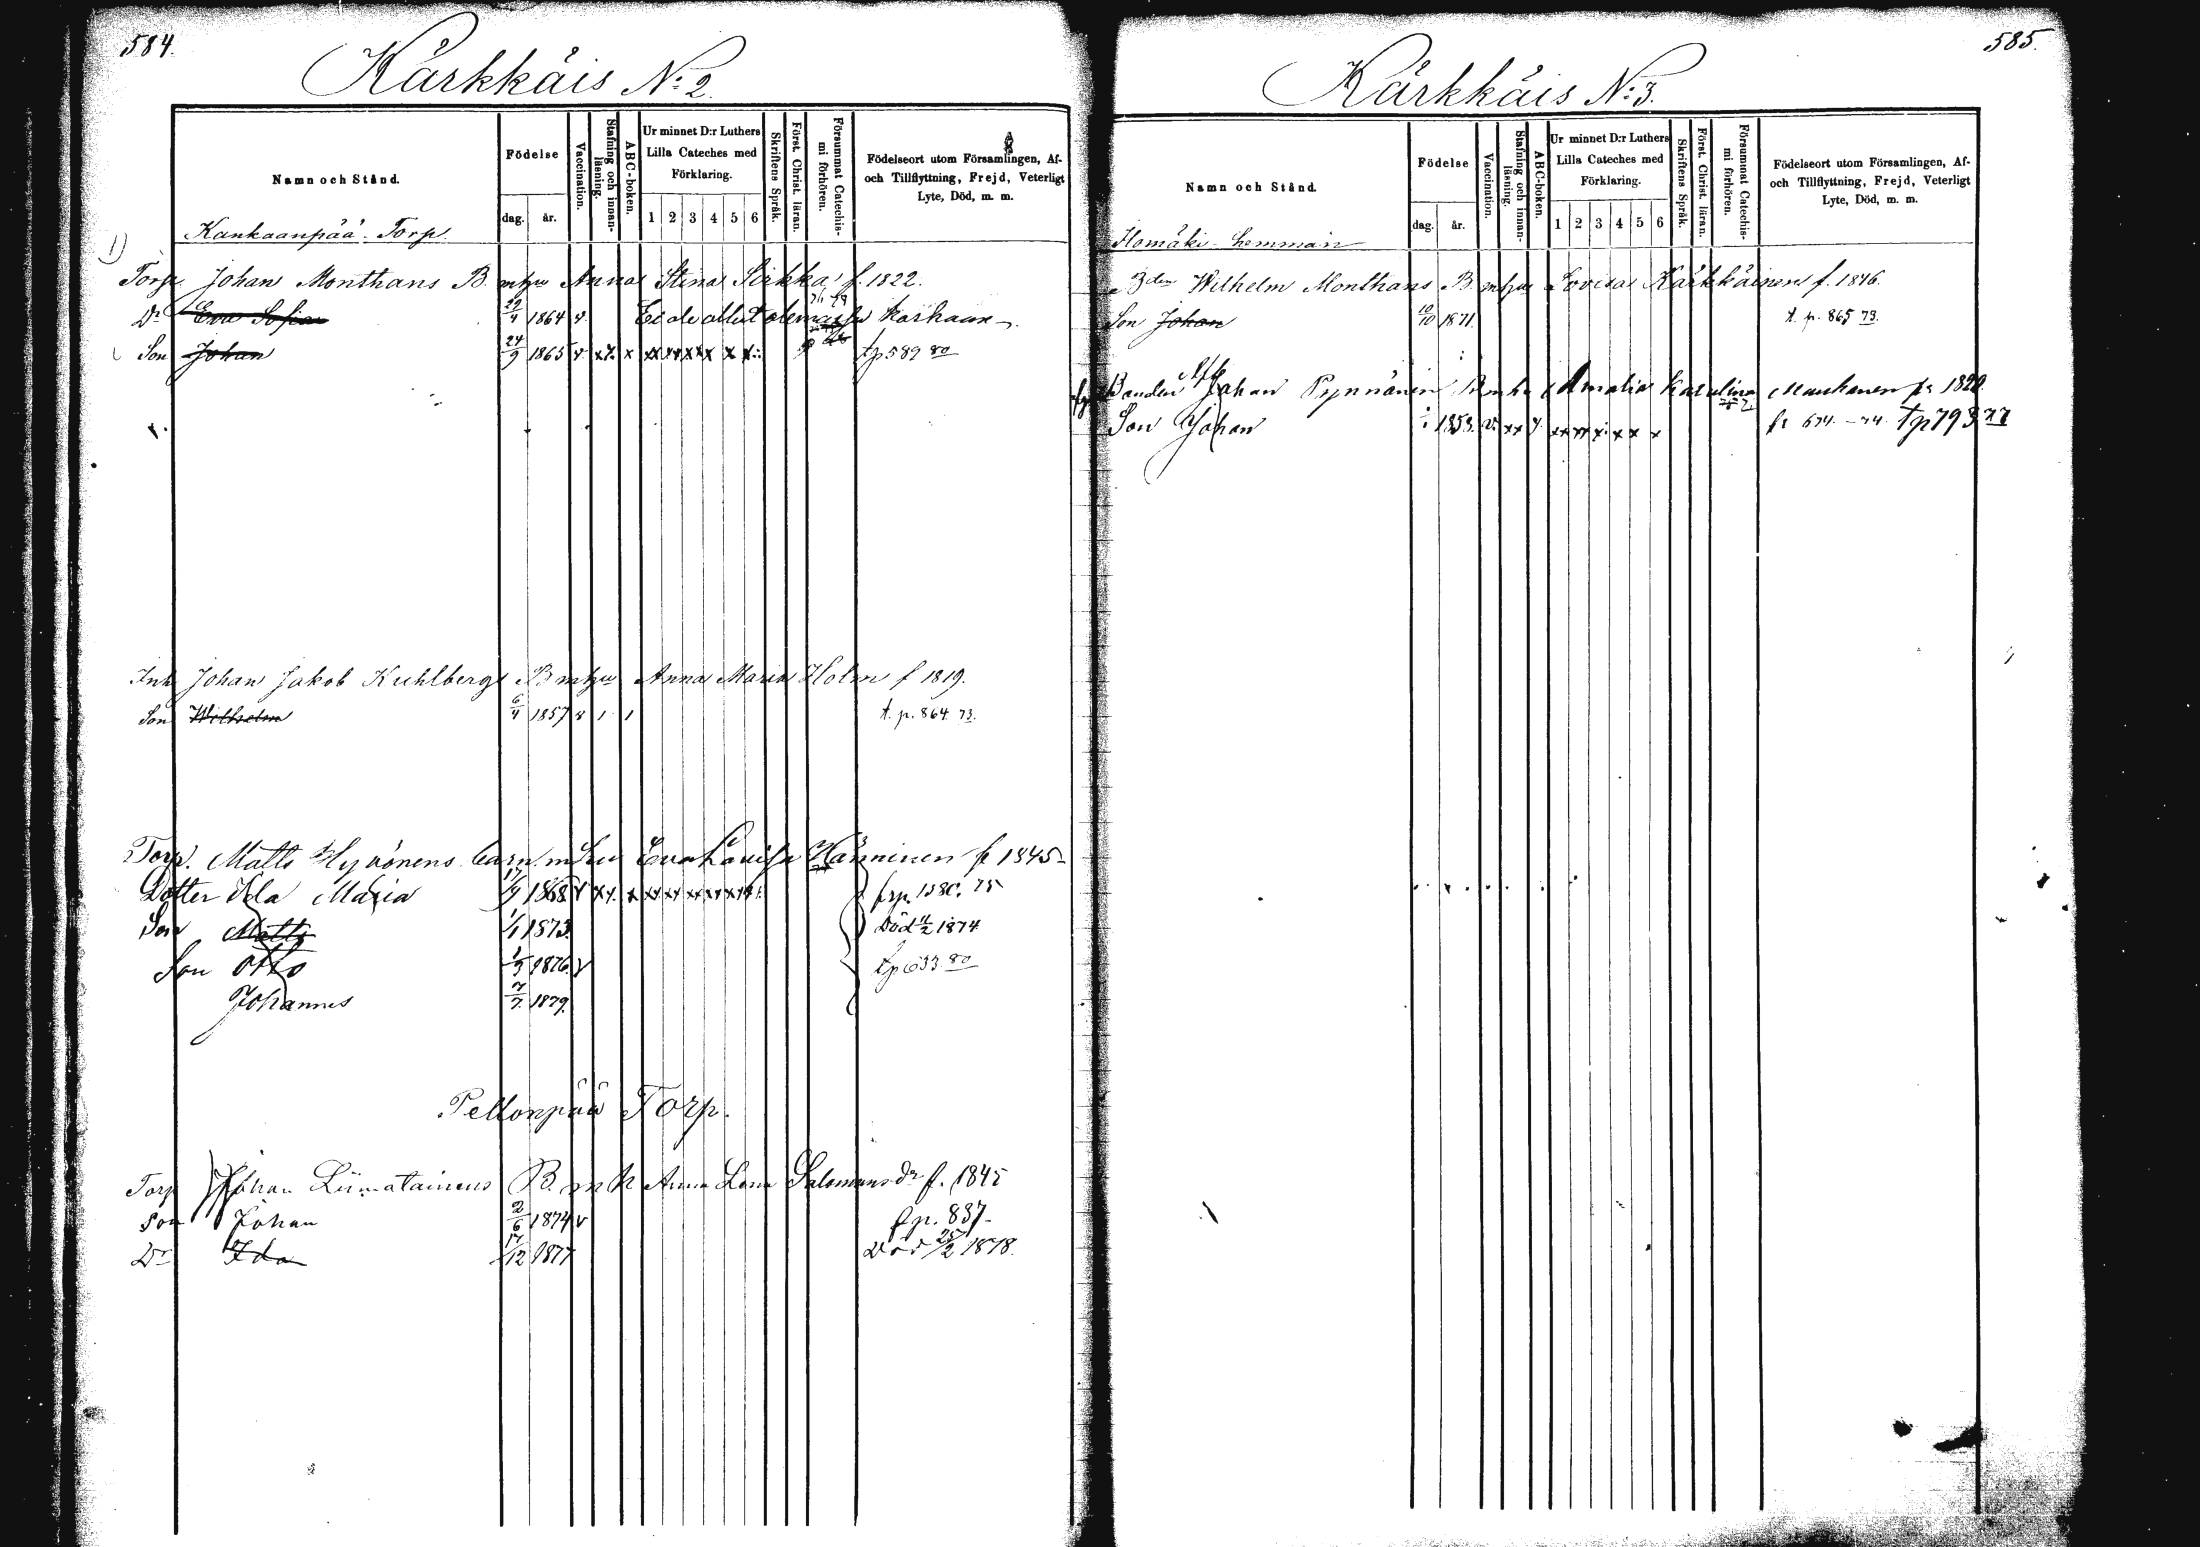 584.
Kärkkäis No: 2.
Namn och Stånd.
Födelse
dag. år.
Vaccination.
Stafning och innanläsning.
ABC-boken.
Ur minnet D:r Luthers Lilla Cateches med Förklaring.
1 2 3 4 5 6
Skriftens Språk.
Först. Christ. läran.
Försummat Catechismi förhören.
Födelseort utom Församlingen, Af- och Tillflyttning, Frejd, Veterligt Lyte, Död, m. m.
Kankaanpää Torp.
Torp. Johan Monthans B. m hu Anna Stina Sirkka f. 1822.
Dr Eva Sofia 29/4 1864 v. Ei ole ollut olemassa
Son Johan 24/9 1865 v x x x xx xx xx x x x tp 589 80
Inh Johan Jakob Kuhlbergs B m hu Anna Maria Holm f 1819.
Son Wilhelm 6/4 1857 v 1 1 t. p. 864. 73.
Torp. Matts Hyvönens barn. m hu Eva Lovisa Hänninen f 1845
Dotter Ida Maria 17/9 1868 v frp. 1380. 75
Son Matts 1/1 1873. Död 11/2 1874
Son Otto 1/9 1876 v tp 633 80
Johannes 7/7 1879.
Pellonpää Torp.
Torp Johan Liimatainens B. m h Anna Lena Salomonsdr f. 1845
Son Johan 2/6 1874 v fp. 837
Dr Ida 17/12 1877 Död 25/2 1878.
585.
Kärkkäis No: 3.
Namn och Stånd.
Födelse
dag. år.
Vaccination.
Stafning och innanläsning.
ABC-boken.
Ur minnet D:r Luthers Lilla Cateches med Förklaring.
1 2 3 4 5 6
Skriftens Språk.
Först. Christ. läran.
Försummat Catechismi förhören.
Födelseort utom Församlingen, Af- och Tillflyttning, Frejd, Veterligt Lyte, Död, m. m.
Ilomäki hemman
Bden Wilhelm Monthans B. m hu Lovisa Kärkkäinen f. 1846.
Son Johan 10/10 1871. t. p. 865 73.
Johan Pynnönen B m hu Amalia Karolina Manhanen f. 1820
Son Johan 1853. v. xx x xx xx x x x x fr 674 - 74. tp 793 77